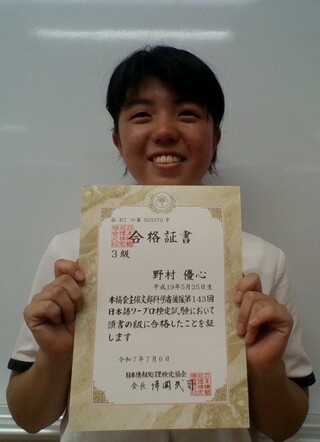 合格証書
3級
野村 優心
平成19年5月25日生
本協会主催文部科学省後援第143回
日本語ワープロ検定試験において
頭書の級に合格したことを証
します
令和7年7月6日
日本情報処理検定協会
会長